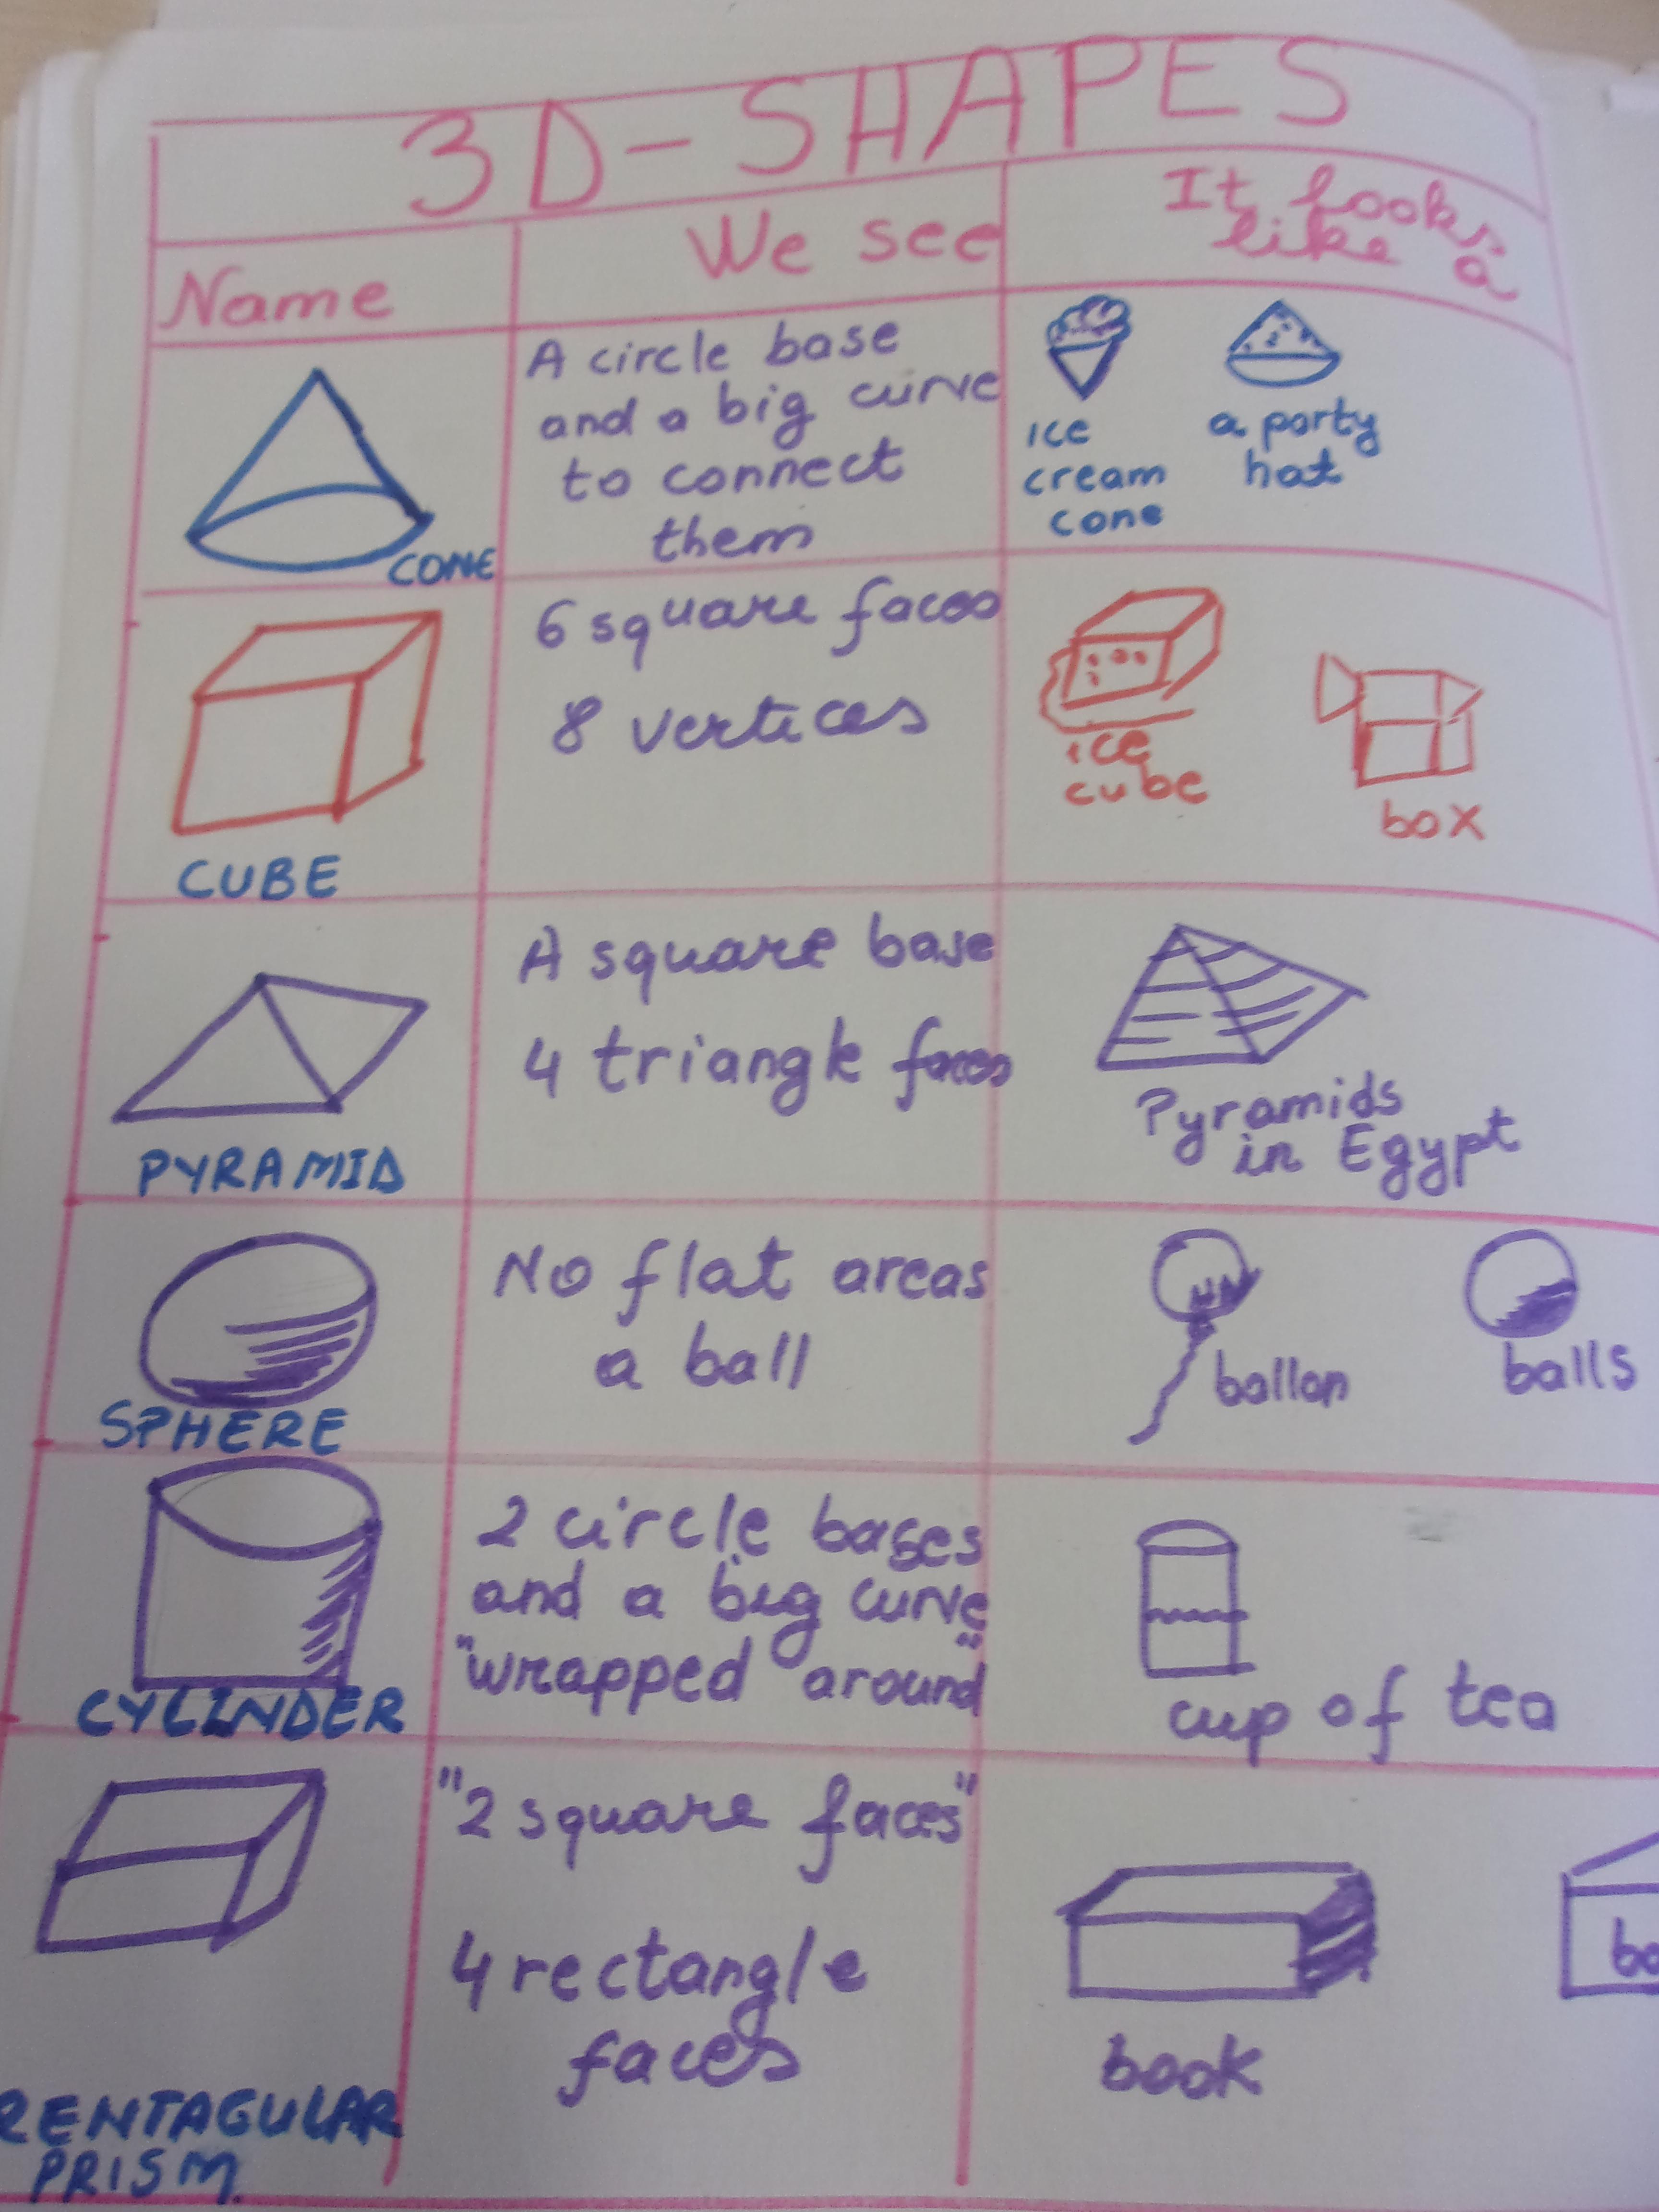 3D-SHAPES
Name
We see
It looks
like a
CONE
A circle base
and a big curve
to connect
them
ice
cream
cone
a party
hat
CUBE
6 square faces
8 vertices
ice
cube
box
PYRAMID
A square base
4 triangle faces
Pyramids
in Egypt
SPHERE
No flat areas
a ball
ballon
balls
CYLINDER
2 circle bases
and a big curve
"wrapped around"
cup of tea
RENTAGULAR
PRISM.
"2 square faces"
4 rectangle
faces
book